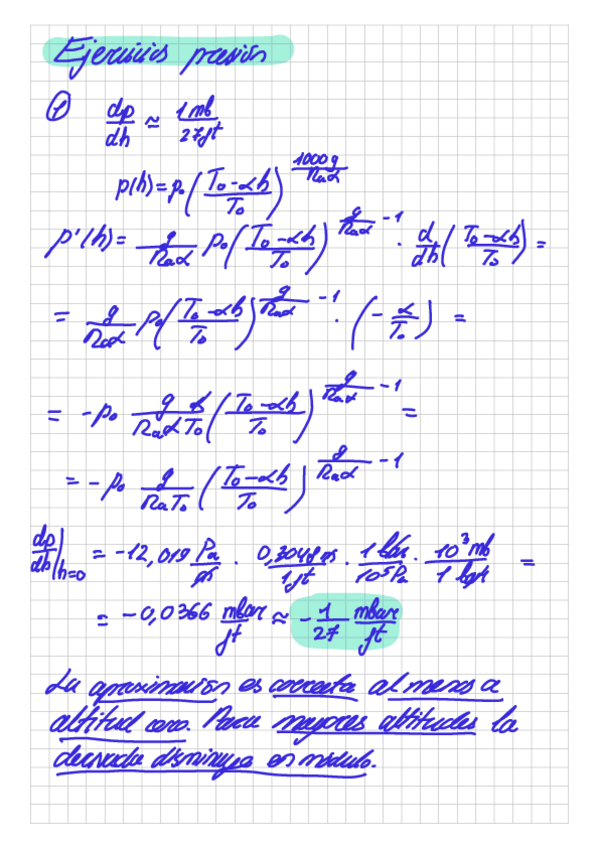 Ejercicios presión
① dp/dh ≈ 1mb/27ft
p(h) = p₀ ((T₀-αh)/T₀)^(1000g/(Raα))
p'(h) = g/(Raα) p₀ ((T₀-αh)/T₀)^(g/(Raα) -1) · d/dh ((T₀-αh)/T₀) =
= g/(Raα) p₀ ((T₀-αh)/T₀)^(g/(Raα) -1) · (- α/T₀) =
= -p₀ (g α)/(Raα T₀) ((T₀-αh)/T₀)^(g/(Raα) -1) =
= -p₀ g/(RaT₀) ((T₀-αh)/T₀)^(g/(Raα) -1)
dp/dh |h=0 = -12,019 Pa/m · 0,3048 m/1ft · 1 bar/10⁵Pa · 10³ mb/1 bar =
= -0,0366 mbar/ft ≈ - 1/27 mbar/ft
La aproximación es correcta al menos a
altitud cero. Para mayores altitudes la
derivada disminuye en módulo.